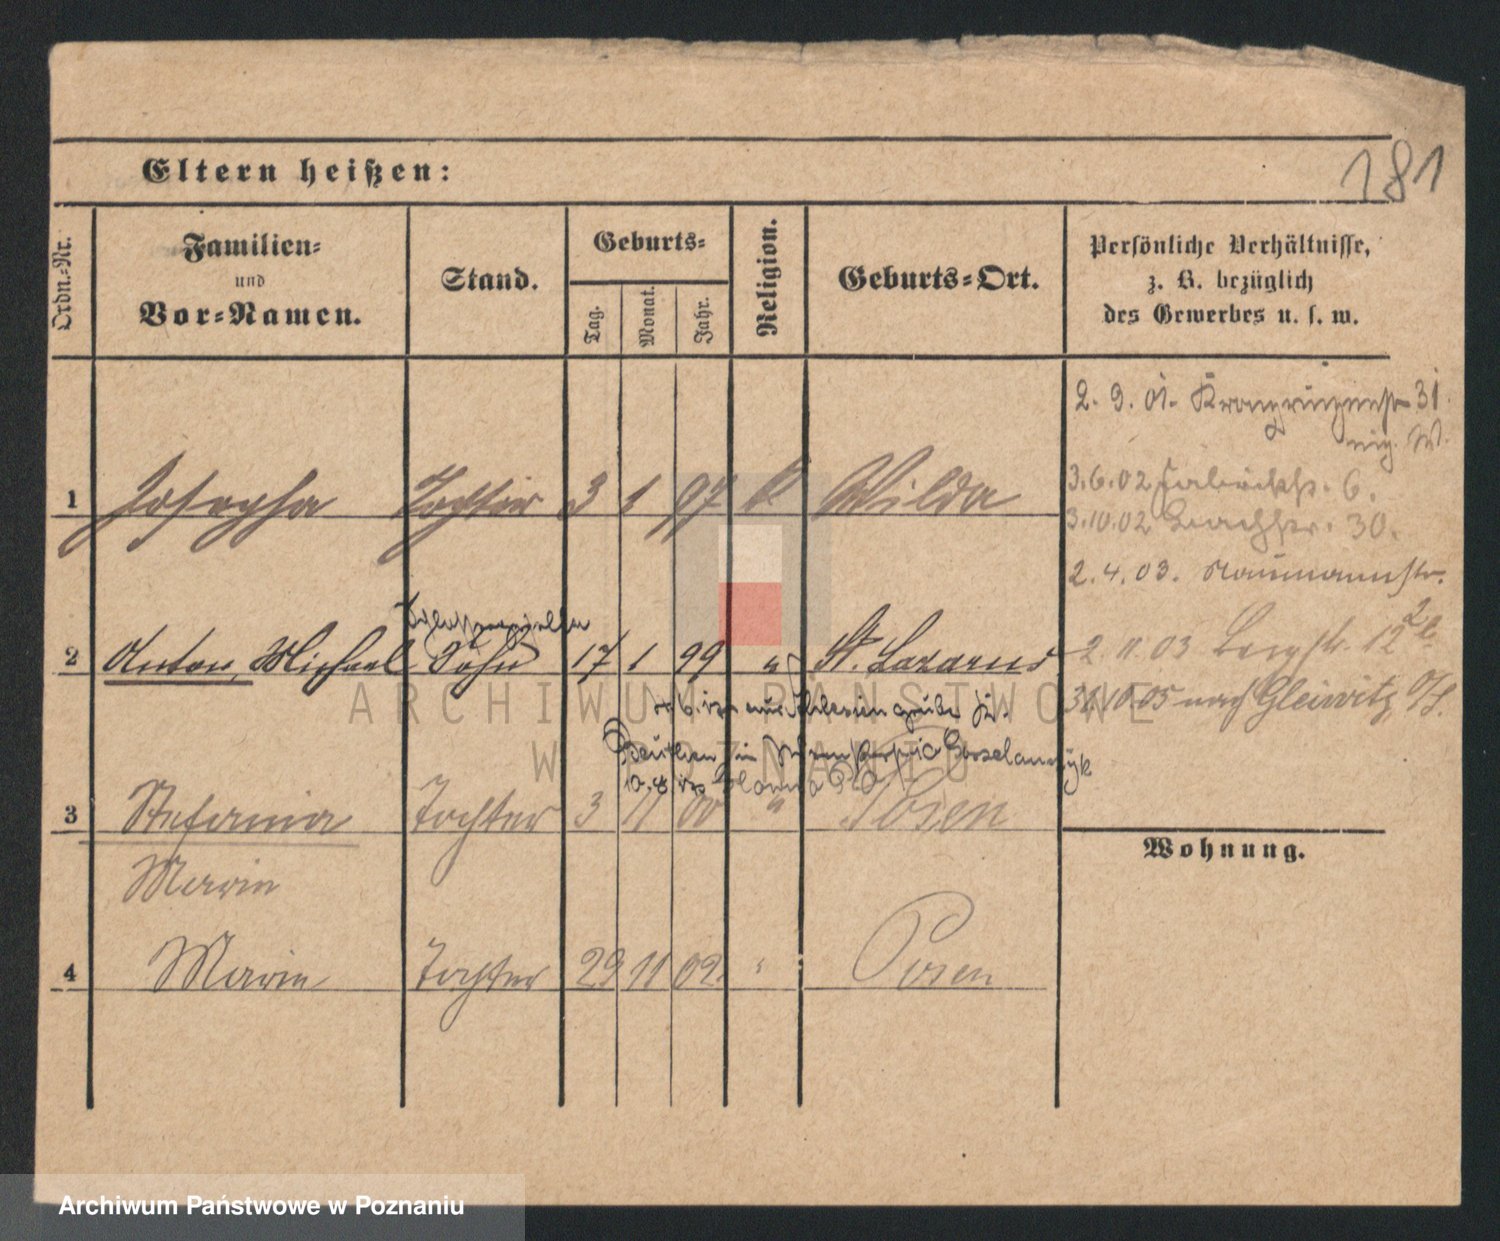 181
Eltern heißen:
Ordn.-Nr.
Familien-
und
Vor-Namen.
Stand.
Geburts-
Tag.
Monat.
Jahr.
Religion.
Geburts-Ort.
Persönliche Verhältnisse,
z. B. bezüglich
des Gewerbes u. s. w.
2. 9. 01. Kronprinzenstr 31
W.
1 Josepha Tochter 3 1 97 k Wilda
3.6.02 Fabrikstr. 6.
3.10.02 Bachstr. 30.
2.4.03. Naumannstr.
2 Anton, Michael Sohn 17 1 99 " St. Lazarus
2 11 03 Bergstr. 12
30.10.05 nach Gleiwitz O/S.
Beuthen in
3 Stefania Tochter 3 11 00 " Posen
Marie
Wohnung.
4 Marie Tochter 29 11 02. " Posen
ARCHIWUM PAŃSTWOWE
W POZNANIU
Archiwum Państwowe w Poznaniu